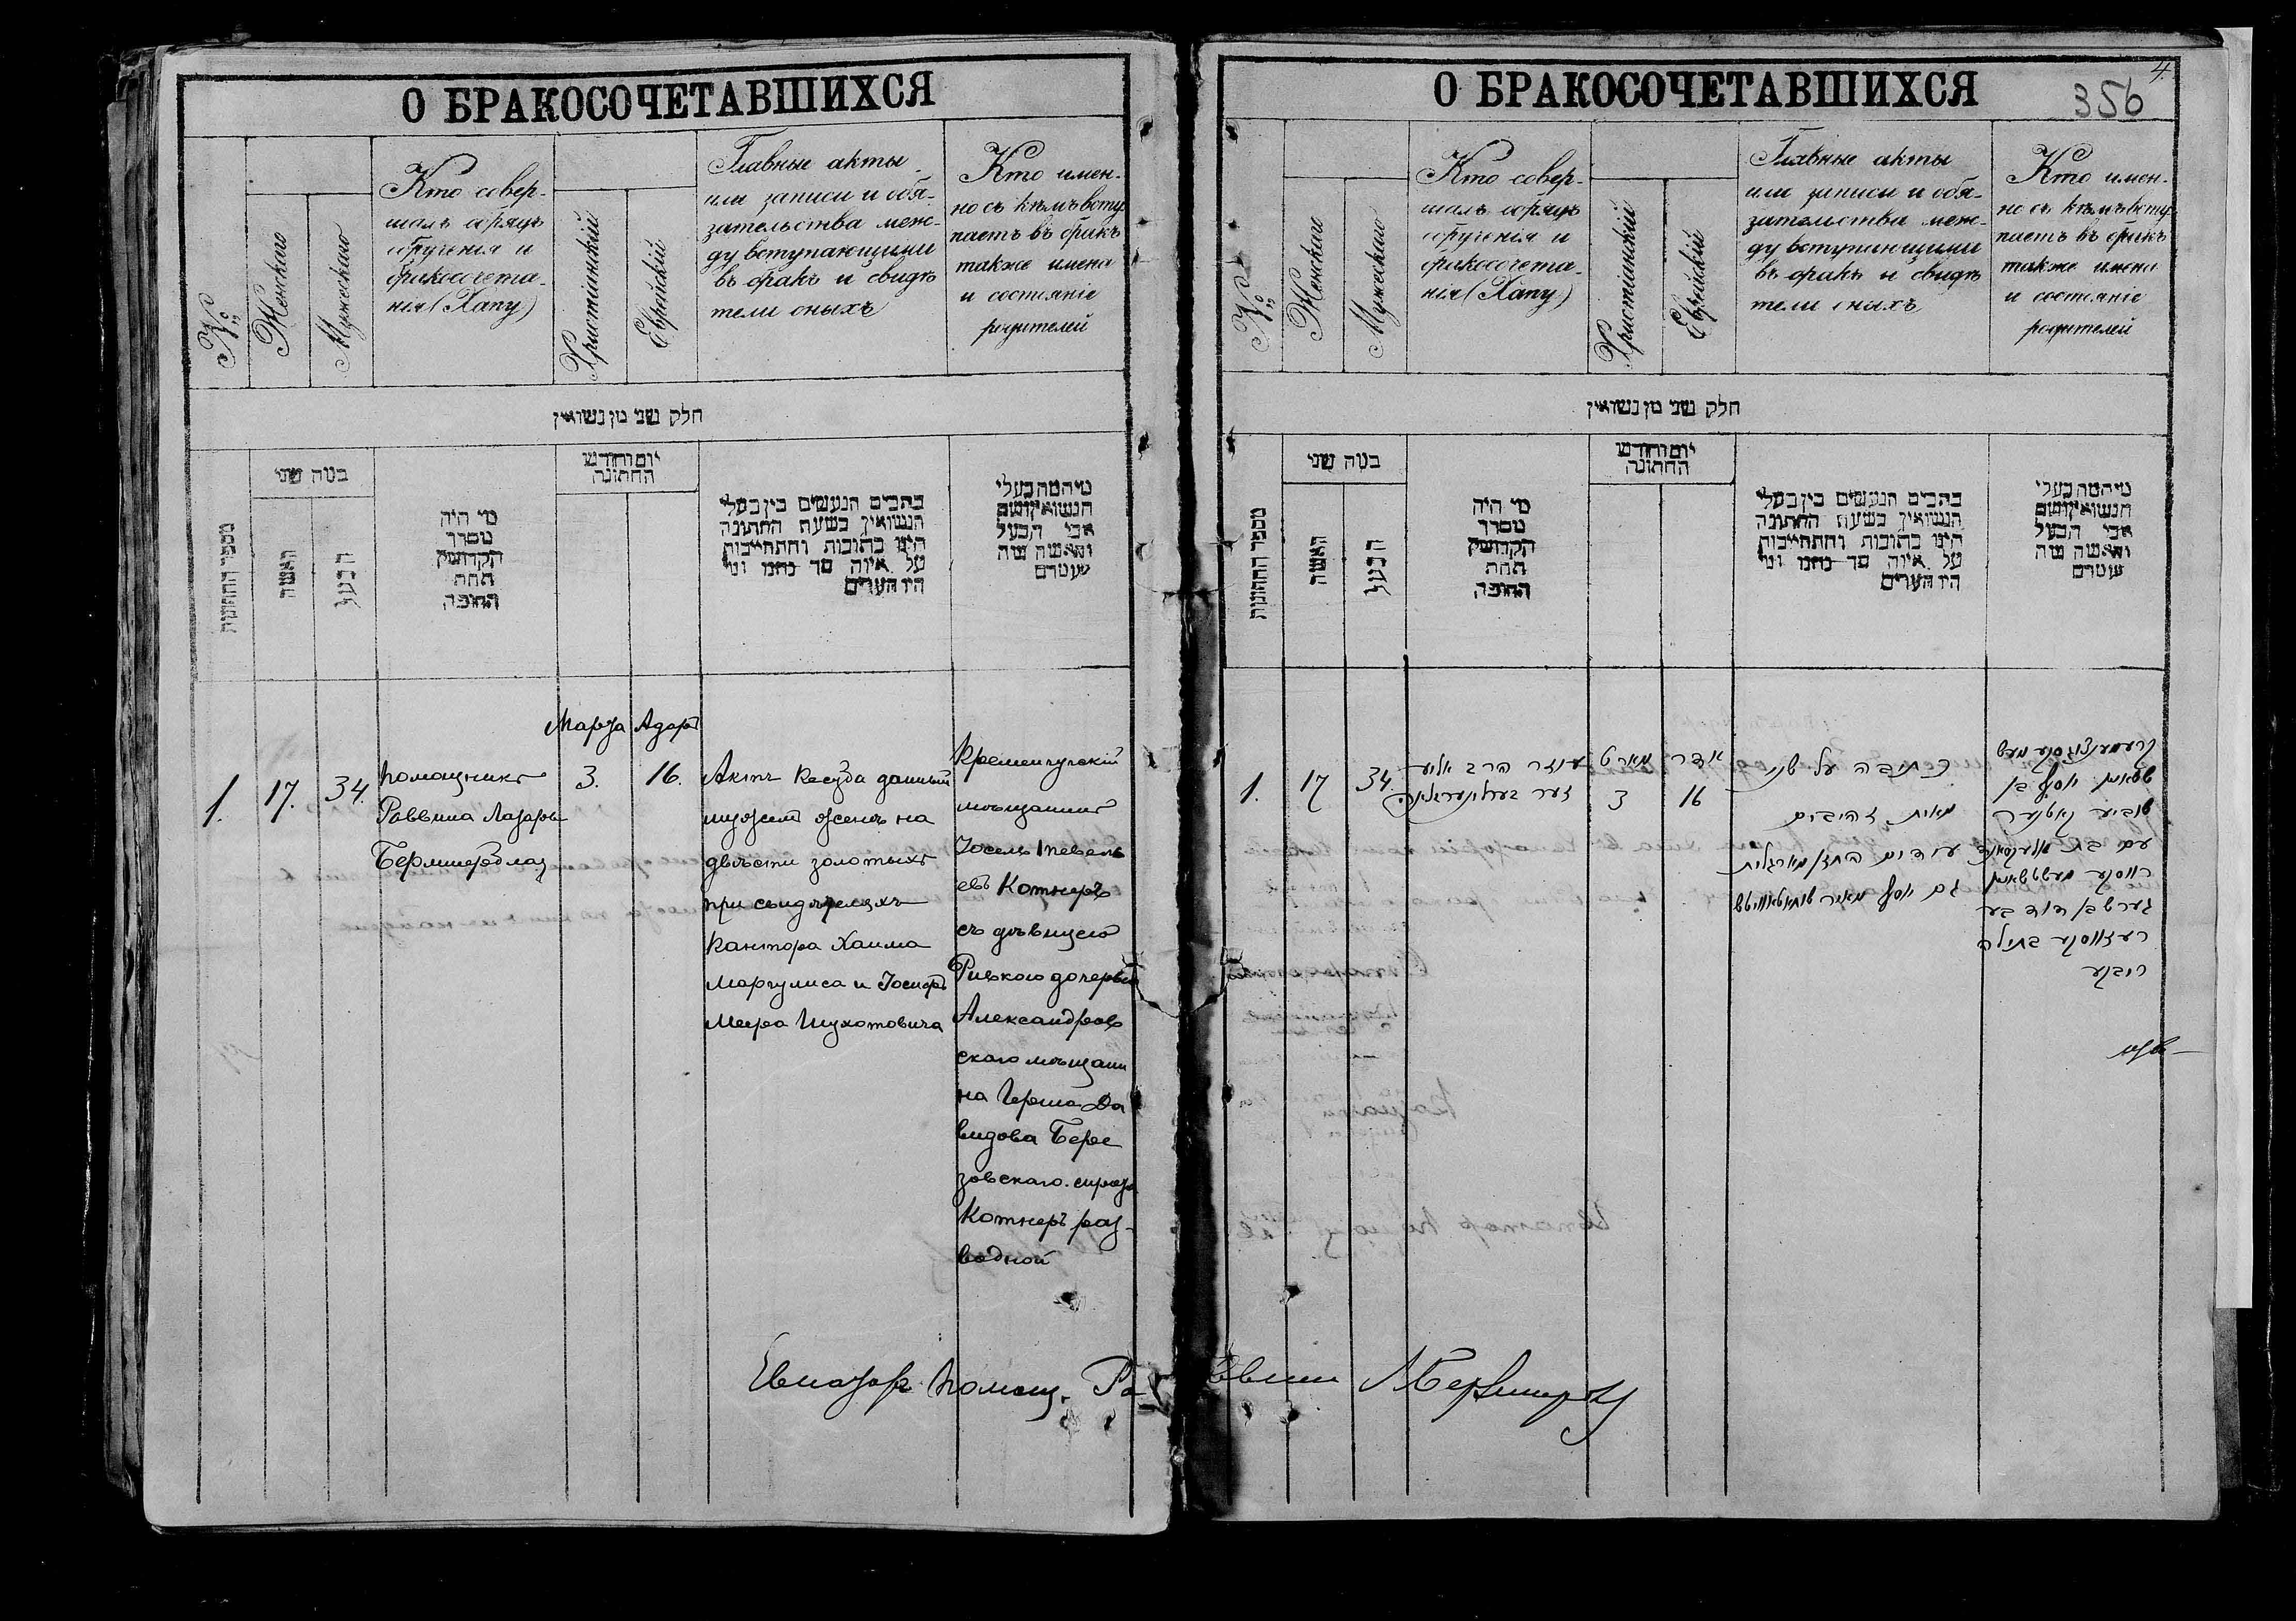 О БРАКОСОЧЕТАВШИХСЯ
№
Женскаго
Мужескаго
Кто совер-
шалъ обрядъ
обрученія и
бракосочета-
нія (Хапу)
Христіанскій
Еврейскій
Главные акты
или записи и обя-
зательства меж-
ду вступающими
въ бракъ и свидѣ
тели оныхъ
Кто имен-
но съ кѣмъ всту
паетъ въ бракъ
также имена
и состояніе
родителей
חלק שני מן נשואין
מספר החתונות
כמה שני
האשה
הבעל
מי היה
מסדר
הקדושין
תחת
החופה
יום וחודש
החתונה
כתבים הנעשים בין בעלי
הנשואין בשעת החתונה
היינו כתובות והתחייבות
על איזה סך נתנו ומי
היו העדים
מי המה בעלי
הנשואין ושם
אבי הבעל
והאשה
1.
17.
34.
Помощникъ
Раввина Лазарь
Марта
3.
Адаръ
16.
Актъ Кесуба данный
мужемъ женѣ на
двѣсти золотыхъ
при свидѣтеляхъ
Кантора Хаима
Маргулиса и Іосифъ
Меера Шухотовича
Кременчугскій
мѣщанинъ
Іосель Тевель
евъ Котнеръ
съ дѣвицею
Ривкою дочерью
Александров
скаго мѣщани
на Герша Да
видова Бере
зовскаго.
Котнеръ раз-
водной
Помощ. Ра
О БРАКОСОЧЕТАВШИХСЯ
4.
356
№
Женскаго
Мужескаго
Кто совер-
шалъ обрядъ
обрученія и
бракосочета-
нія (Хапу)
Христіанскій
Еврейскій
Главные акты
или записи и обя-
зательства меж-
ду вступающими
въ бракъ и свидѣ
тели оныхъ
Кто имен-
но съ кѣмъ всту
паетъ въ бракъ
также имена
и состояніе
родителей
חלק שני מן נשואין
מספר החתונות
כמה שני
האשה
הבעל
מי היה
מסדר
הקדושין
תחת
החופה
יום וחודש
החתונה
כתבים הנעשים בין בעלי
הנשואין בשעת החתונה
היינו כתובות והתחייבות
על איזה סך נתנו ומי
היו העדים
מי המה בעלי
הנשואין ושם
אבי הבעל
והאשה
1.
17
34.
עוזר הרב אליע
זער
מארט
3
אדר
16
כתובה על שני
מאות זהובים
עידים החזן מארגלית
גם יוסף מאיר
יוסף בן
טוביע קאטנער
עם בת
הירש בן דוד בער
בתולה
רבקע
ввин